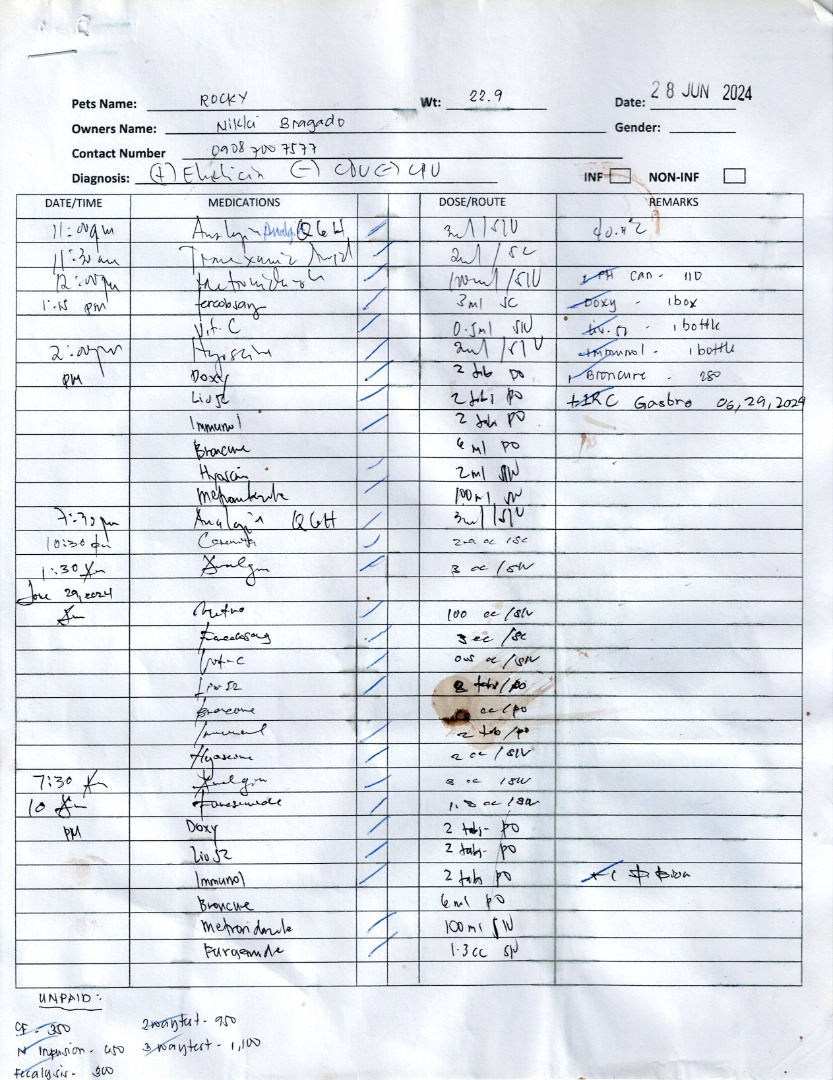 Pets Name: ROCKY Wt: 22.9 Date: 28 JUN 2024
Owners Name: Nikki Bragado Gender:
Contact Number 0908 700 7577
Diagnosis: (+) (-) CDV (-) CPV INF NON-INF
DATE/TIME MEDICATIONS DOSE/ROUTE REMARKS
11:00am Analgin Q6H 3ml / SIV
11:30 am Tranexamic Acid 2ml / SC
12:00pm Metronidazole 100ml / SIV CAN - 110
1:15 pm Fercobsang 3ml SC Doxy - 1box
Vit. C 0.5ml SIV Liv. 52 - 1 bottle
2:00pm Hyoscine 2ml / SIV Immunol - 1 bottle
PM Doxy 2 tab PO Broncure - 280
Liv52 2 tabs PO IRC Gastro 06,29,2024
Immunol 2 tabs PO
Broncure 6 ml PO
Hyoscin 2ml SIV
100ml SIV
7:30 pm Analgin Q6H 3ml / SIV
10:30 pm cc / SC
1:30 Am Analgin 3 cc / SIV
June 29, 2024
Am Metro 100 cc / SIV
3 cc / SC
Vit-C cc / SIV
Liv 52 2 tabs / PO
Broncure cc / PO
Immunol 2 tab / PO
Hyoscine 2 cc / SIV
7:30 Am Analgin 3 cc / SIV
10 Am Furosemide cc / SIV
PM Doxy 2 tabs - PO
Liv 52 2 tabs - PO
Immunol 2 tabs PO
Broncure 6 ml PO
Metronidazole 100ml SIV
1.3 cc SIV
UNPAID:
CF - 350 2waytest - 950
IV Infusion - 450 3 waytest - 1,100
Fecalysis - 300